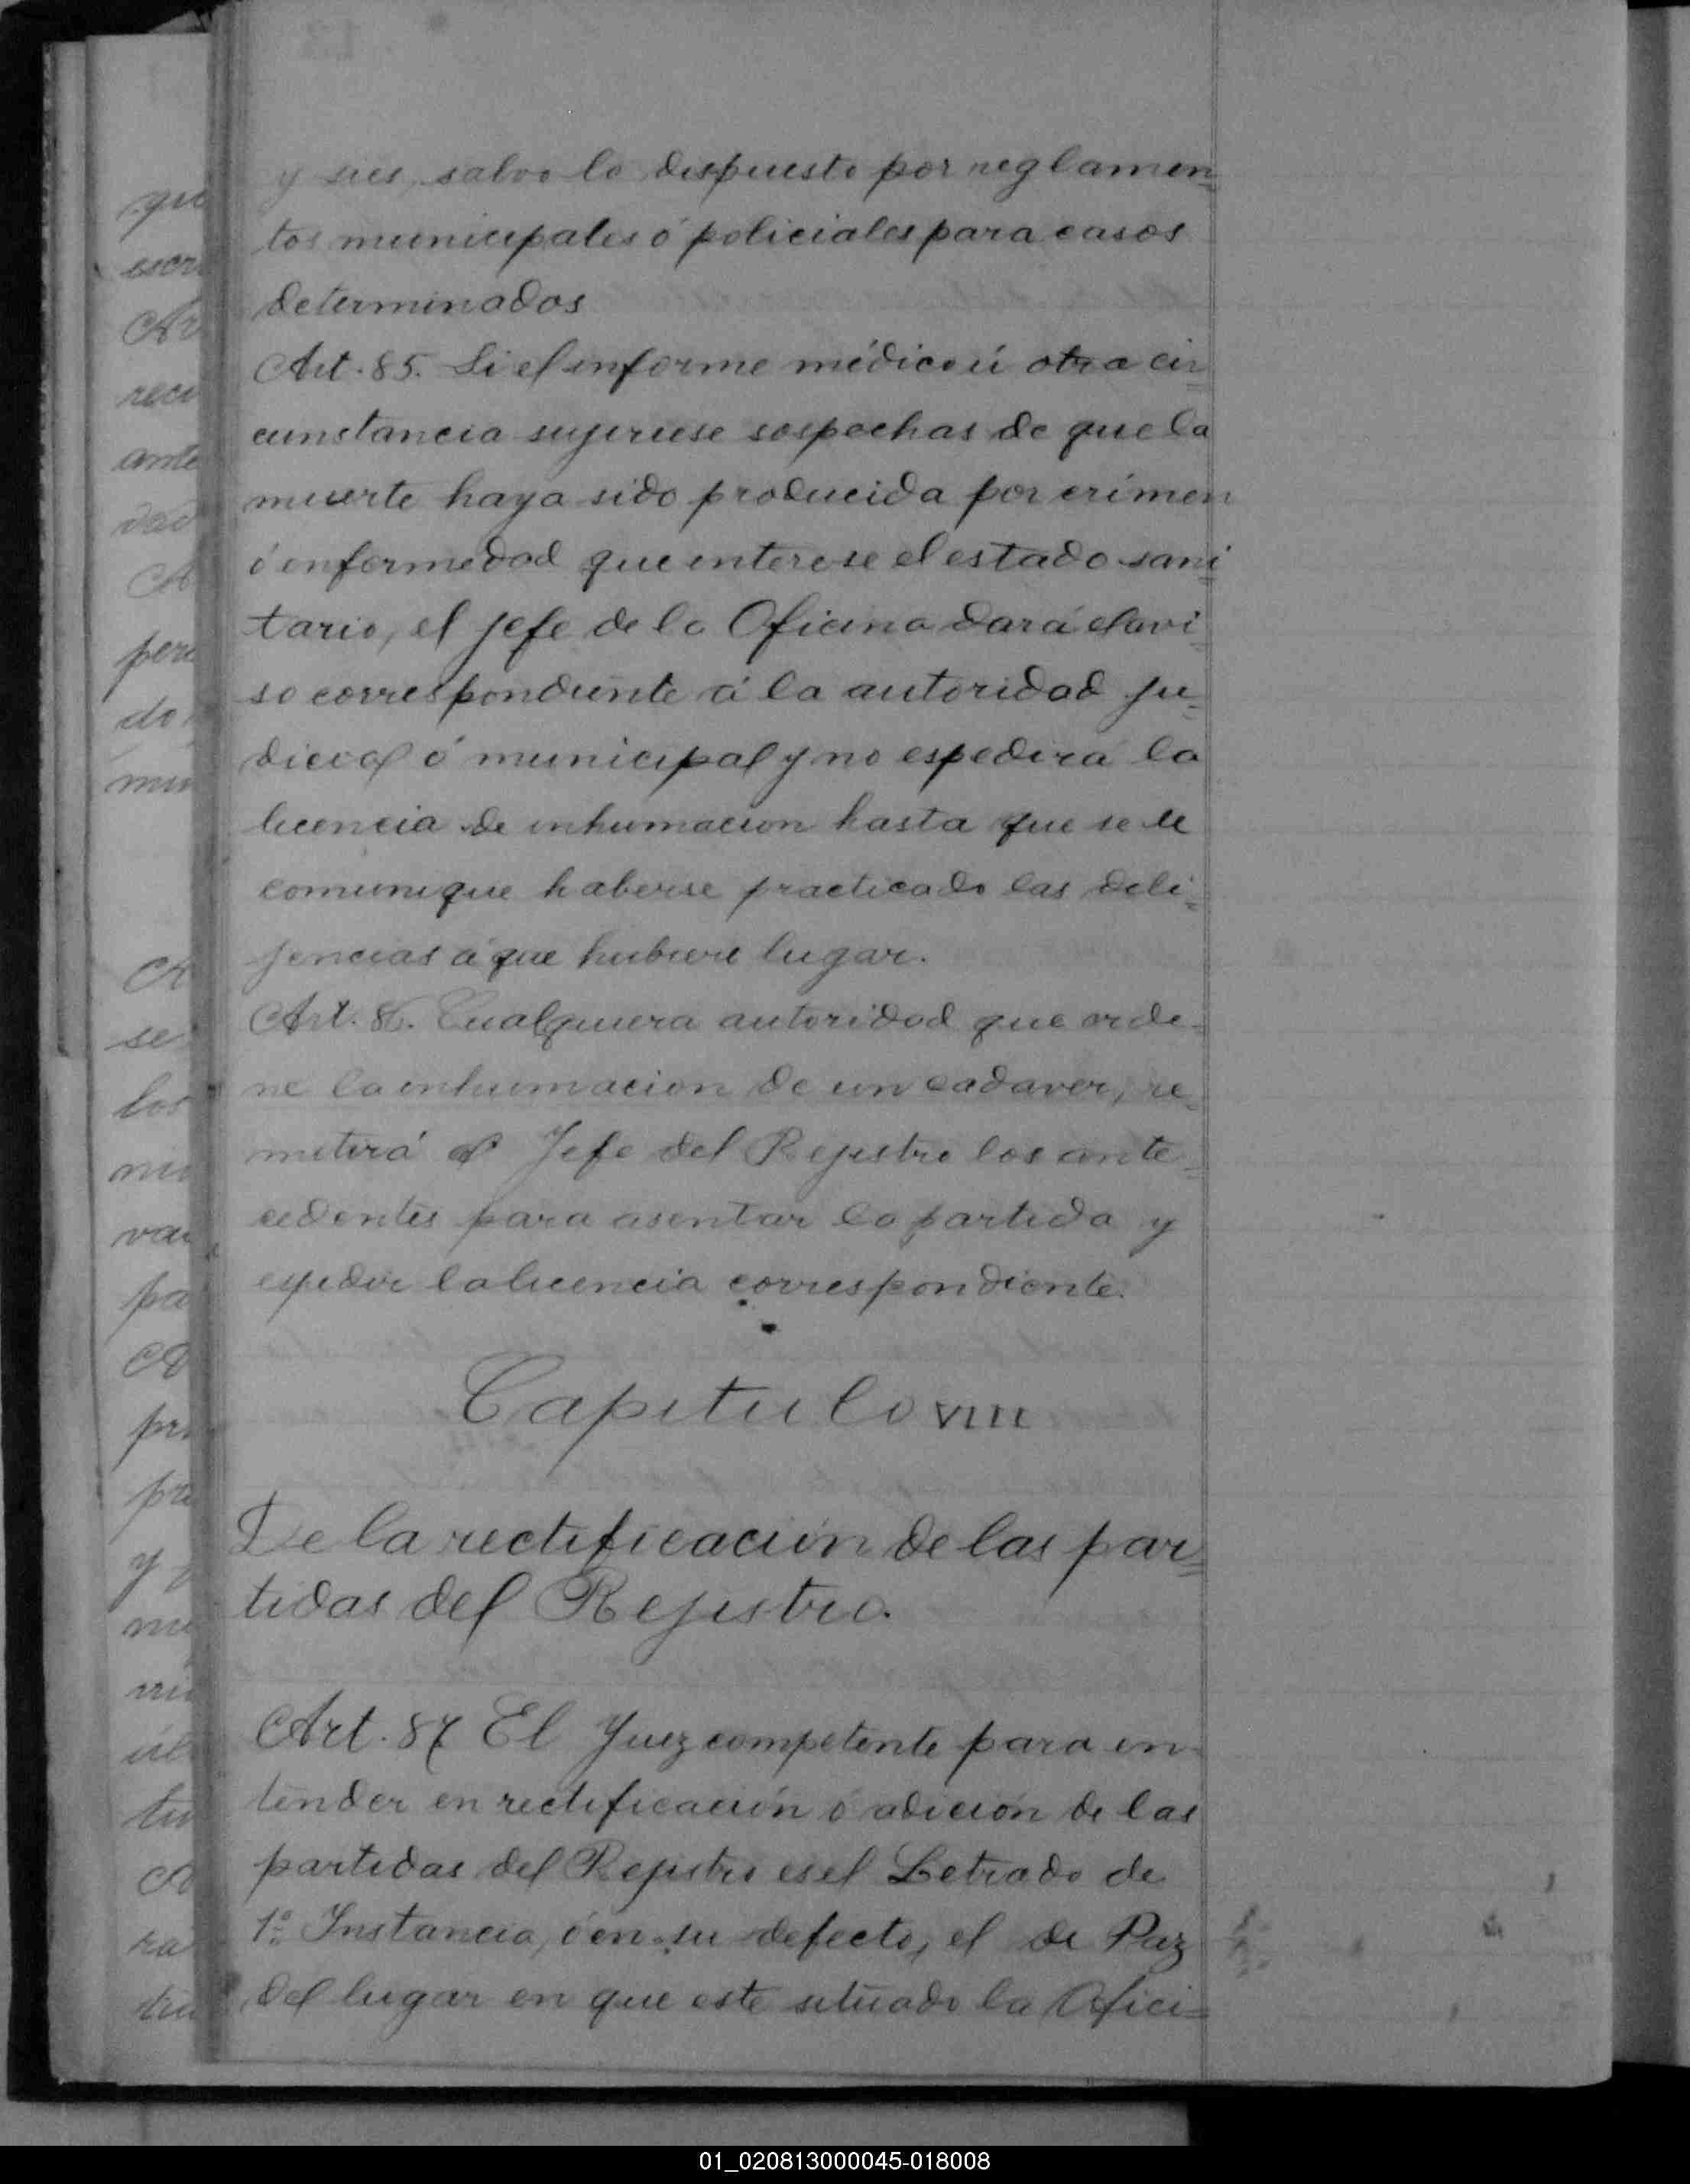 y seis, salvo lo dispuesto por reglamen=
tos municipales ó policiales para casos
determinados
Art. 85. Si el informe médico ú otra cir=
cunstancia sujiriese sospechas de que la
muerte haya sido producida por crímen
ó enfermedad que interese el estado sani=
tario, el jefe de la Oficina dará el avi=
so correspondiente á la autoridad ju=
dicial ó municipal y no espedirá la
licencia de inhumacion hasta que se le
comunique haberse practicado las deli=
jencias á que hubiere lugar.
Art. 86. Cualquiera autoridad que orde=
ne la inhumacion de un cadaver, re=
mitirá al Jefe del Rejistro los ante=
cedentes para asentar la partida y
espedir la licencia correspondiente.
Capitulo VIII
De la rectificación de las par=
tidas del Rejistro.
Art. 87 El Juez competente para en=
tender en rectificación ó adición de las
partidas del Rejistro es el Letrado de
1ª Instancia, ó en su defecto, el de Paz
del lugar en que este situado la Ofici=
qu
escri
Ar
reci
ante
dad
A
pere
do
mun
A
se
los
va
pa
pri
pre
y
tu
A
ra
01_020813000045-018008